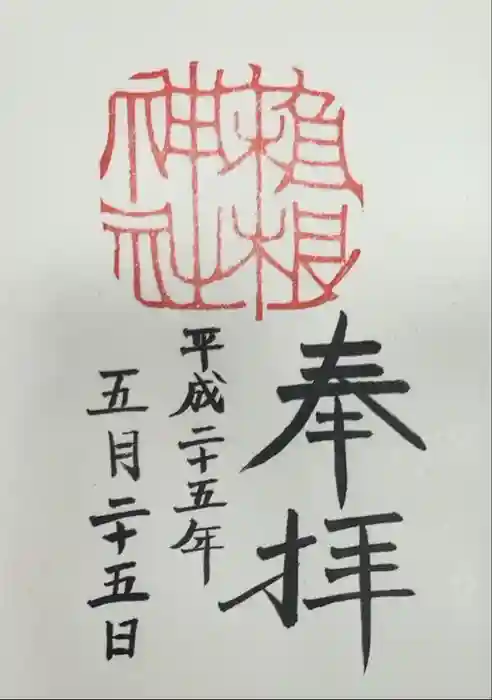 根
神社
奉拝
平成二十五年
五月二十五日